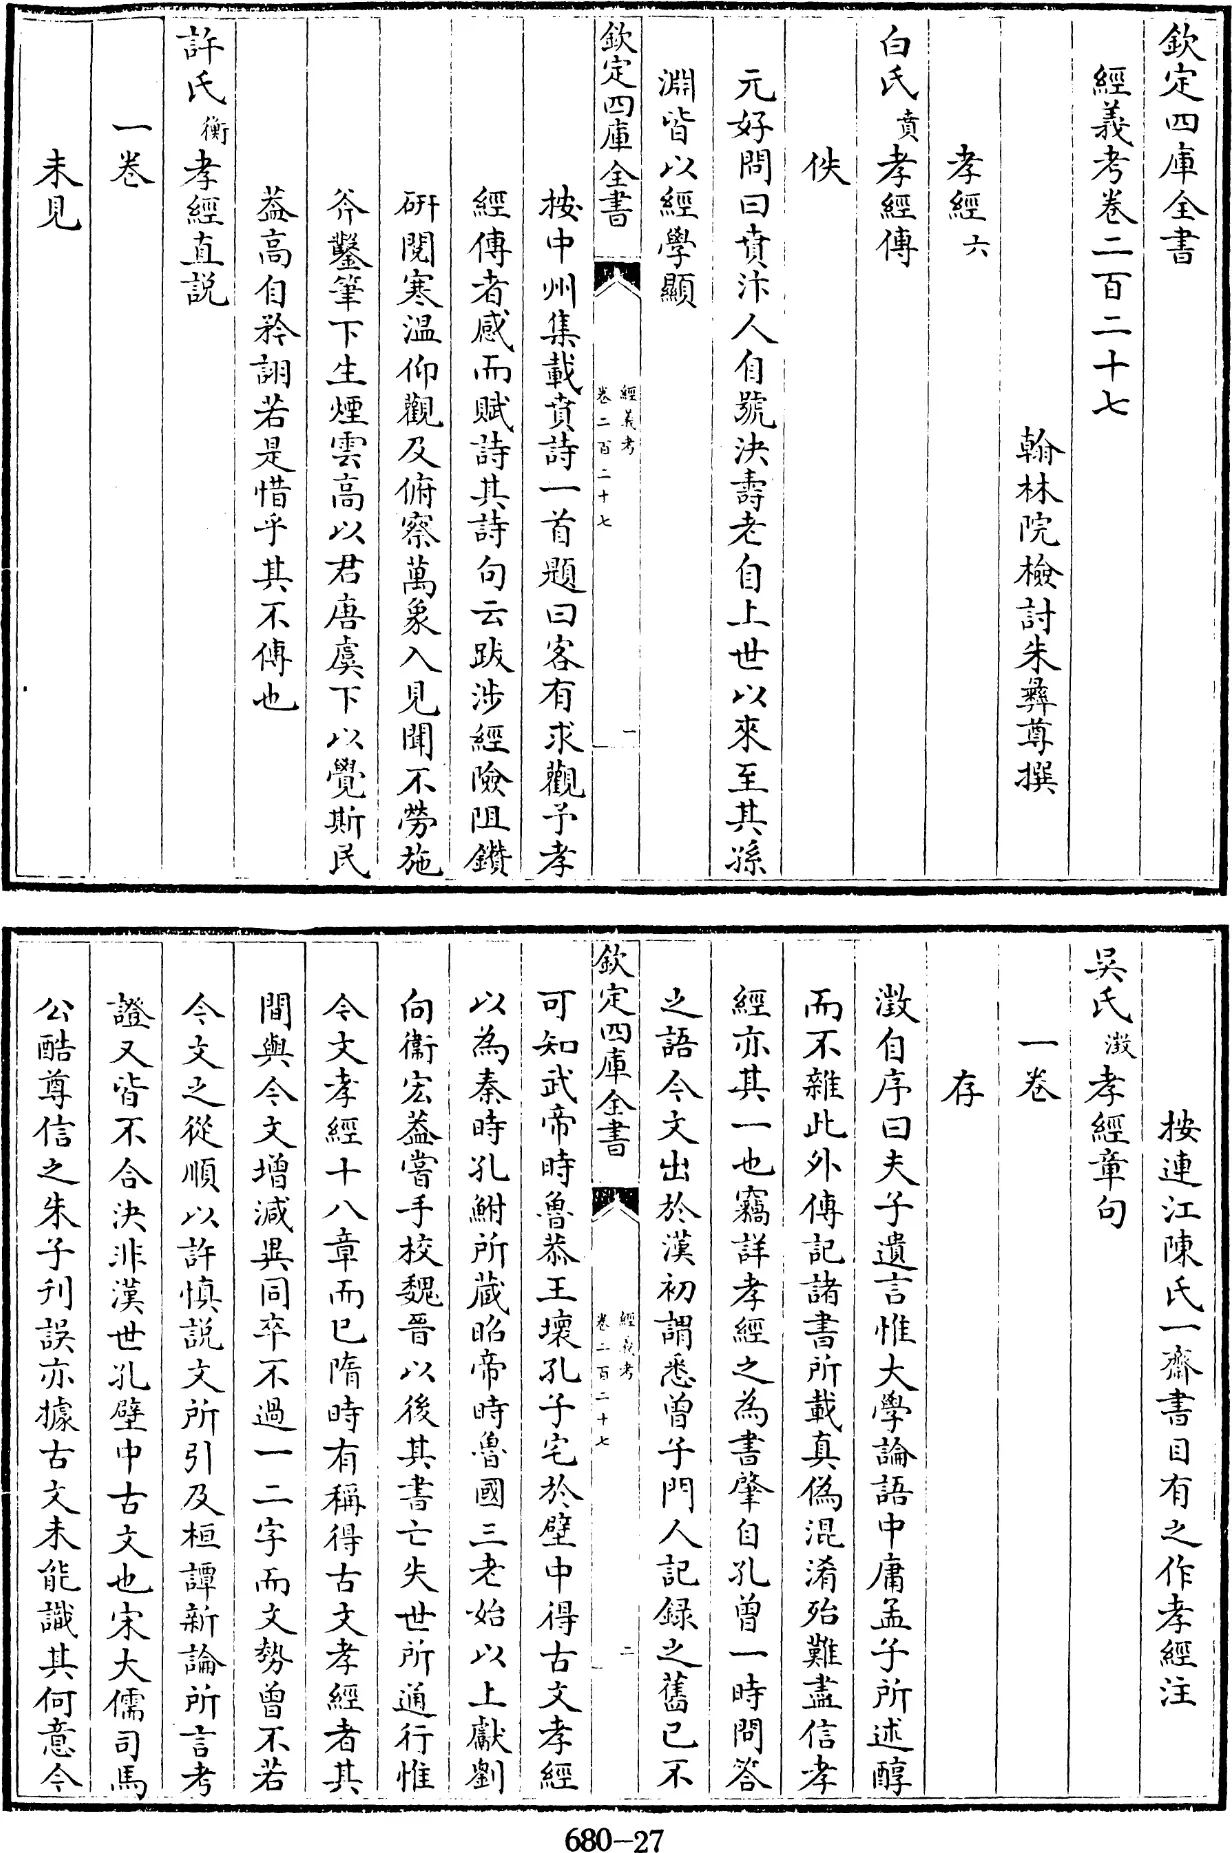 欽定四庫全書
經義考卷二百二十七
翰林院檢討朱彝尊撰
孝經六
白氏賁孝經傳
佚
元好問曰賁汴人自號決壽老自上世以來至其孫
淵皆以經學顯
欽定四庫全書
經義考
卷二百二十七
一
按中州集載賁詩一首題曰客有求觀予孝
經傳者感而賦詩其詩句云跋涉經險阻鑽
研閱寒温仰觀及俯察萬象入見聞不勞施
斧鑿筆下生煙雲高以君唐虞下以覺斯民
葢高自矜詡若是惜乎其不傳也
許氏衡孝經直説
一卷
未見
按連江陳氏一齋書目有之作孝經注
吳氏澂孝經章句
一卷
存
澂自序曰夫子遺言惟大學論語中庸孟子所述醇
而不雜此外傳記諸書所載真偽混淆殆難盡信孝
經亦其一也竊詳孝經之為書肇自孔曾一時問答
之語今文出於漢初謂悉曾子門人記録之舊已不
欽定四庫全書
經義考
卷二百二十七
二
可知武帝時魯恭王壞孔子宅於壁中得古文孝經
以為秦時孔鮒所藏昭帝時魯國三老始以上獻劉
向衞宏葢嘗手校魏晉以後其書亡失世所通行惟
今文孝經十八章而已隋時有稱得古文孝經者其
間與今文增減異同卒不過一二字而文勢曾不若
今文之從順以許慎説文所引及桓譚新論所言考
證又皆不合決非漢世孔壁中古文也宋大儒司馬
公酷尊信之朱子刊誤亦據古文未能識其何意今
680-27